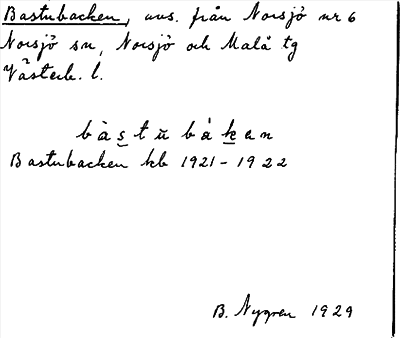 Bastubacken, avs. från Norsjö nr 6
Norsjö sn, Norsjö och Malå tg
Västerb. l.
bàstŭbákan
Bastubacken kb 1921-1922
B. Nygren 1929